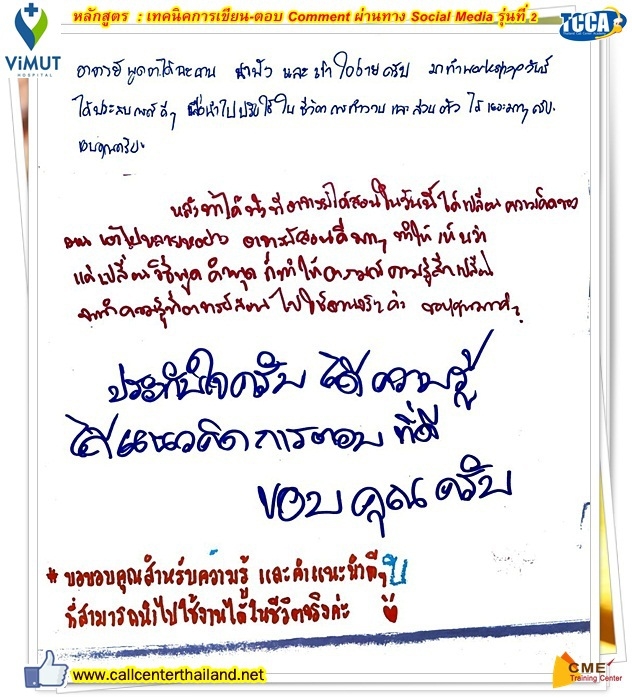 หลักสูตร : เทคนิคการเขียน-ตอบ Comment ผ่านทาง Social Media รุ่นที่ 2
ViMUT
HOSPITAL
TCCA
อาจารย์ พูดจาได้ฉะฉาน น่าฟัง และ เข้าใจง่ายครับ มาทำ workshop วันนี้
ได้ประสบการณ์ ดีๆ เพื่อนำไปปรับใช้ใน ชีวิต การทำงาน และ ส่วนตัว ได้ เยอะมากๆ ครับ
ขอบคุณครับ
หลังจากได้ ที่อาจารย์ได้สอนในวันนี้ ได้เปลี่ยน ความคิดของ
ตน เอาไปหลายอย่าง อาจารย์สอนดีมากๆ ทำให้ เห็นว่า
แค่เปลี่ยนวิธีพูด คำพูด ก็ทำให้อารมณ์ ความรู้สึกเปลี่ยน
จะนำความรู้ที่อาจารย์สอน ไปใช้งานจริงๆ ค่ะ ขอบคุณมากค่ะ
ประทับใจครับ ได้ ความรู้
ได้แนวคิด การตอบ ที่ดี
ขอบคุณ ครับ
* ขอขอบคุณสำหรับความรู้ และคำแนะนำดีๆ
ที่สามารถนำไปใช้งานได้ในชีวิตจริงค่ะ
www.callcenterthailand.net
CME
Training Center